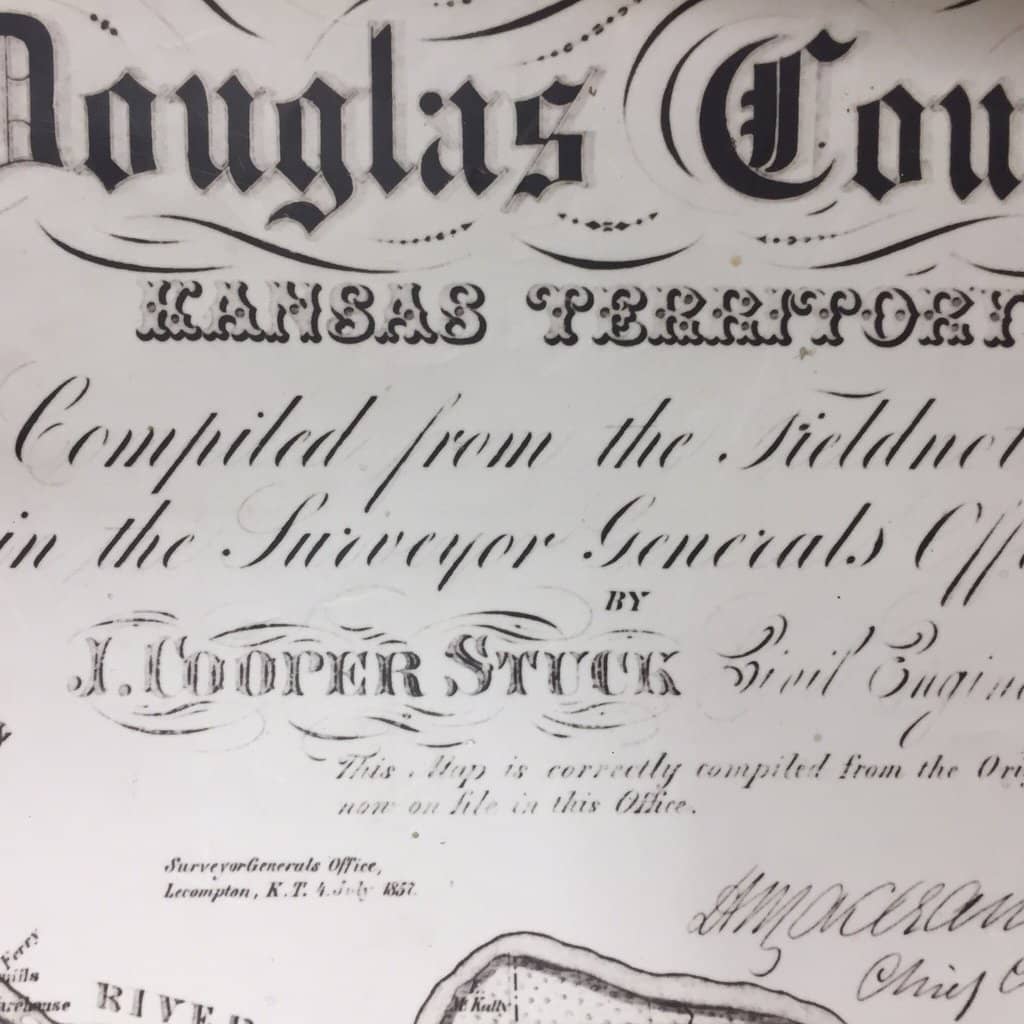 Douglas Cou
KANSAS TERRITORY
Compiled from the Fieldnot
in the Surveyor Generals Offi
BY
J. COOPER STUCK Civil Engine
This Map is correctly compiled from the Ori
now on file in this Office.
SurveyorGenerals Office,
Lecompton, K.T. 4. July 1857.
Chief C
Ferry
mills
arehouse
RIVER